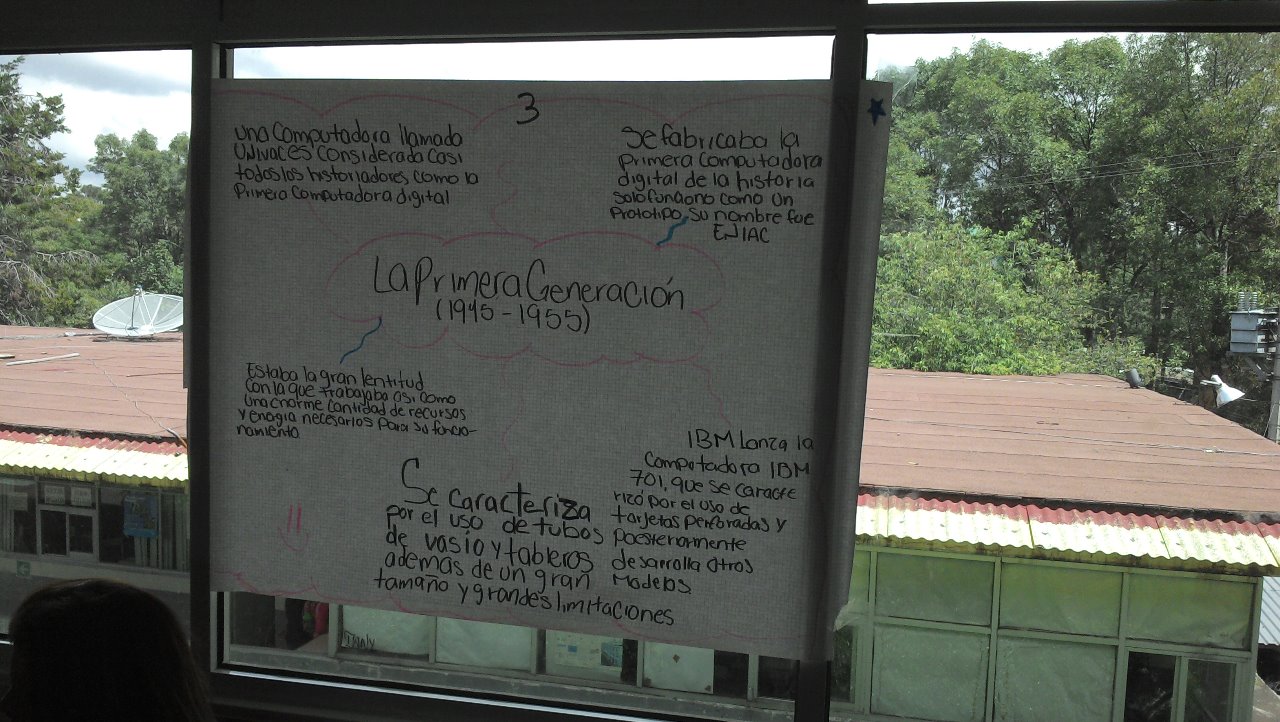 3
una computadora llamado
UNIVACES considerada casi
todos los historiadores como la
primera computadora digital
Se fabricaba la
primera computadora
digital de la historia
solo funciono como un
prototipo, su nombre fue
ENIAC
La Primera Generación
(1945-1955)
Estaba la gran lentitud
con la que trabajaba asi como
una enorme cantidad de recursos
y enegia necesarios para su funcio-
namiento
Se caracteriza
por el uso de tubos
de vasio y tableros
ademas de un gran
tamaño y grandes limitaciones
IBM Lanza la
Computadora IBM
701, que se caracte
rizó por el uso de
tarjetas perforadas y
poesteriormente
desarrolla otros
Modelos